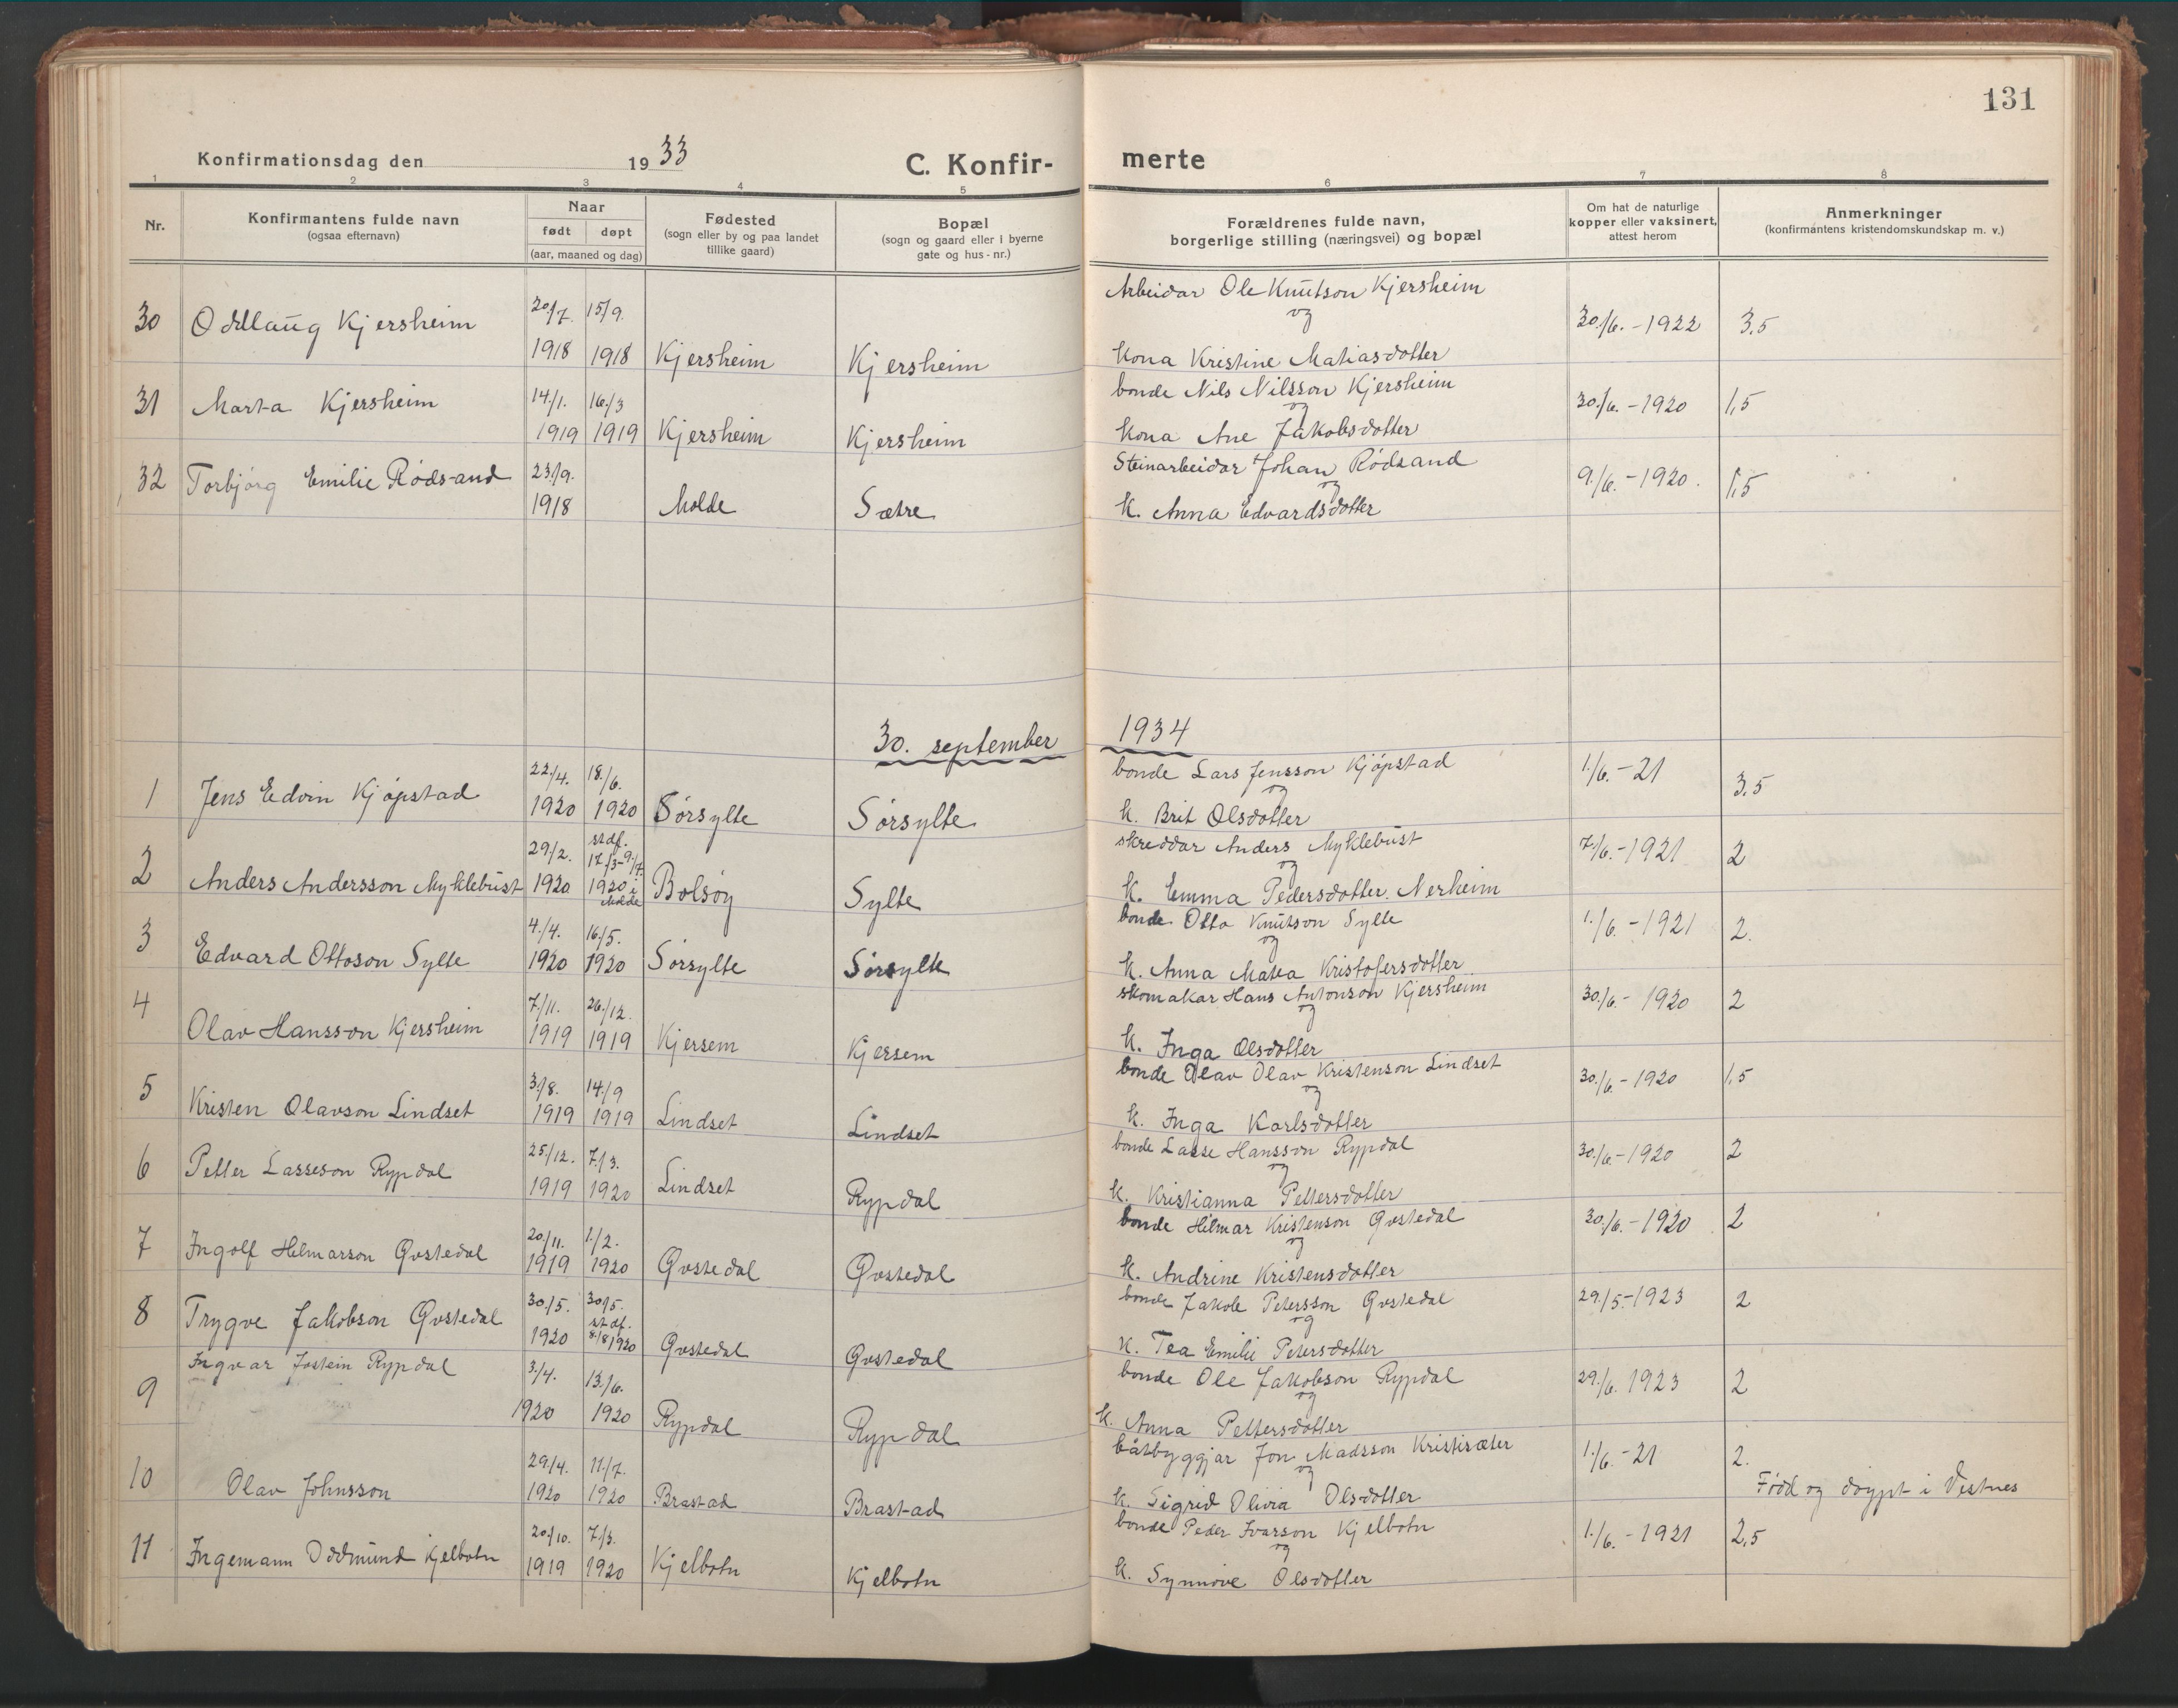 131
Konfirmationsdag den 1933 C. Konfirmerte
1 2 3 4 5 6 7 8
Nr.
Konfirmantens fulde navn
(ogsaa efternavn)
Naar
født døpt
(aar, maaned og dag)
Fødested
(sogn eller by og paa landet
tillike gaard)
Bopæl
(sogn og gaard eller i byerne
gate og hus-nr.)
Forældrenes fulde navn,
borgerlige stilling (næringsvei) og bopæl
Om hat de naturlige
kopper eller vaksinert,
attest herom
Anmerkninger
(konfirmantens kristendomskundskap m. v.)
30 Oddlaug Kjersheim 20/7. 1918 15/9. 1918 Kjersheim Kjersheim
Arbeidar Ole Knutson Kjersheim
og
kona Kristine Matiasdotter
30./6.-1922 3,5
31 Marta Kjersheim 14/1. 1919 16./3 1919 Kjersheim Kjersheim
bonde Nils Nilsson Kjersheim
og
kona Ane Jakobsdotter
30./6.-1920 1,5
32 Torbjørg Emilie Rødsand 23./9. 1918 Molde Sætre
Steinarbeidar Johan Rødsand
og
k. Anna Edvardsdotter
9./6.-1920. 1,5
30. september 1934
1 Jens Edvin Kjøpstad 22./4. 1920 18./6. 1920 Sørsylte Sørsylte
bonde Lars Jensson Kjøpstad
og
k. Brit Olsdotter
1./6.-21 3,5
2 Anders Andersson Myklebust 29/2. 1920 st.df. 17./3-9./7. 1920 i Molde Bolsøy Sylte
skreddar Anders Myklebust
og
k. Emma Pedersdotter Nerheim
7./6.-1921 2
3 Edvard Ottoson Sylte 4./4. 1920 16/5. 1920 Sørsylte Sørsylte
bonde Otto Knutson Sylte
og
k. Anna Matea Kristofersdotter
1./6.-1921 2.
4 Olav Hansson Kjersheim 7/11. 1919 26/12. 1919 Kjersem Kjersem
skomakar Hans Antonson Kjersheim
og
k. Inga Olsdotter
30./6.-1920 2
5 Kristen Olavson Lindset 3./8. 1919 14./9 1919 Lindset Lindset
bonde Olav Olav Kristenson Lindset
og
k. Inga Karlsdotter
30./6-1920 1,5
6 Petter Lasseson Rypdal 25/12. 1919 7./3. 1920 Lindset Rypdal
bonde Lasse Hansson Rypdal
og
k. Kristianna Pettersdotter
30./6-1920 2
7 Ingolf Helmarson Øvstedal 20./11. 1919 1./2. 1920 Øvstedal Øvstedal
bonde Hilmar Kristenson Øvstedal
og
k. Andrine Kristensdotter
30./6.-1920 2
8 Trygve Jakobson Øvstedal 30/5. 1920 30/5. st.df. 8./8 1920 Øvstedal Øvstedal
bonde Jakob Petersson Øvstedal
og
k. Tea Emilie Petersdotter
29./5.-1923 2
9 Ingvar Jostein Rypdal 3./4. 1920 13./6. 1920 Rypdal Rypdal
bonde Ole Jakobson Rypdal
og
k. Anna Pettersdotter
29./6. 1923 2
10 Olav Johnsson 29./4. 1920 11./7. 1920 Brastad Brastad
båtbyggjar Jon Madsson Kristisæter
og
k. Sigrid Olivia Olsdotter
1./6.-21 2. Fødd og døypt i Vestnes
11 Ingemann Oddmund Kjelbotn 20./10. 1919 7/3. 1920 Kjelbotn Kjelbotn
bonde Peder Ivarson Kjelbotn
og
k. Synnøve Olsdotter
1./6.-1921 2,5